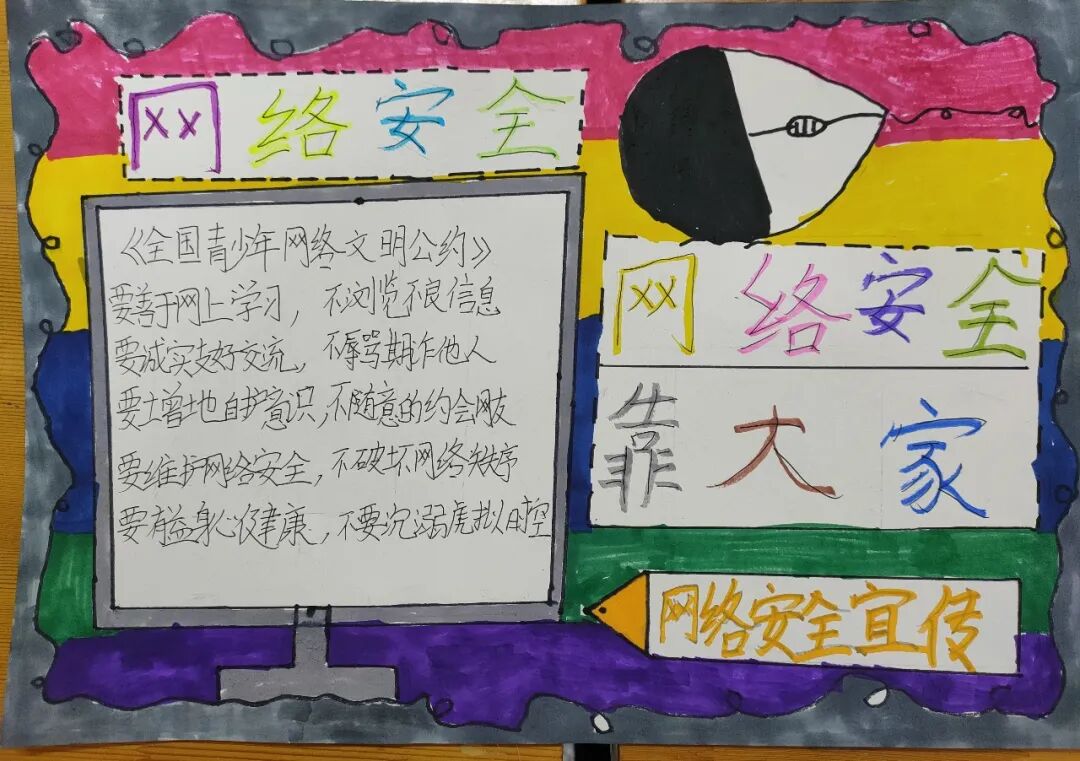 网络安全
《全国青少年网络文明公约》
要善于网上学习，不浏览不良信息
要诚实支好交流，不辱骂期诈他人
要增地自护意识，不随意的约会网友
要维护网络安全，不破坏网络秩序
要有益身心健康，不要沉溺虚拟时空
网络安全
靠大家
网络安全宣传